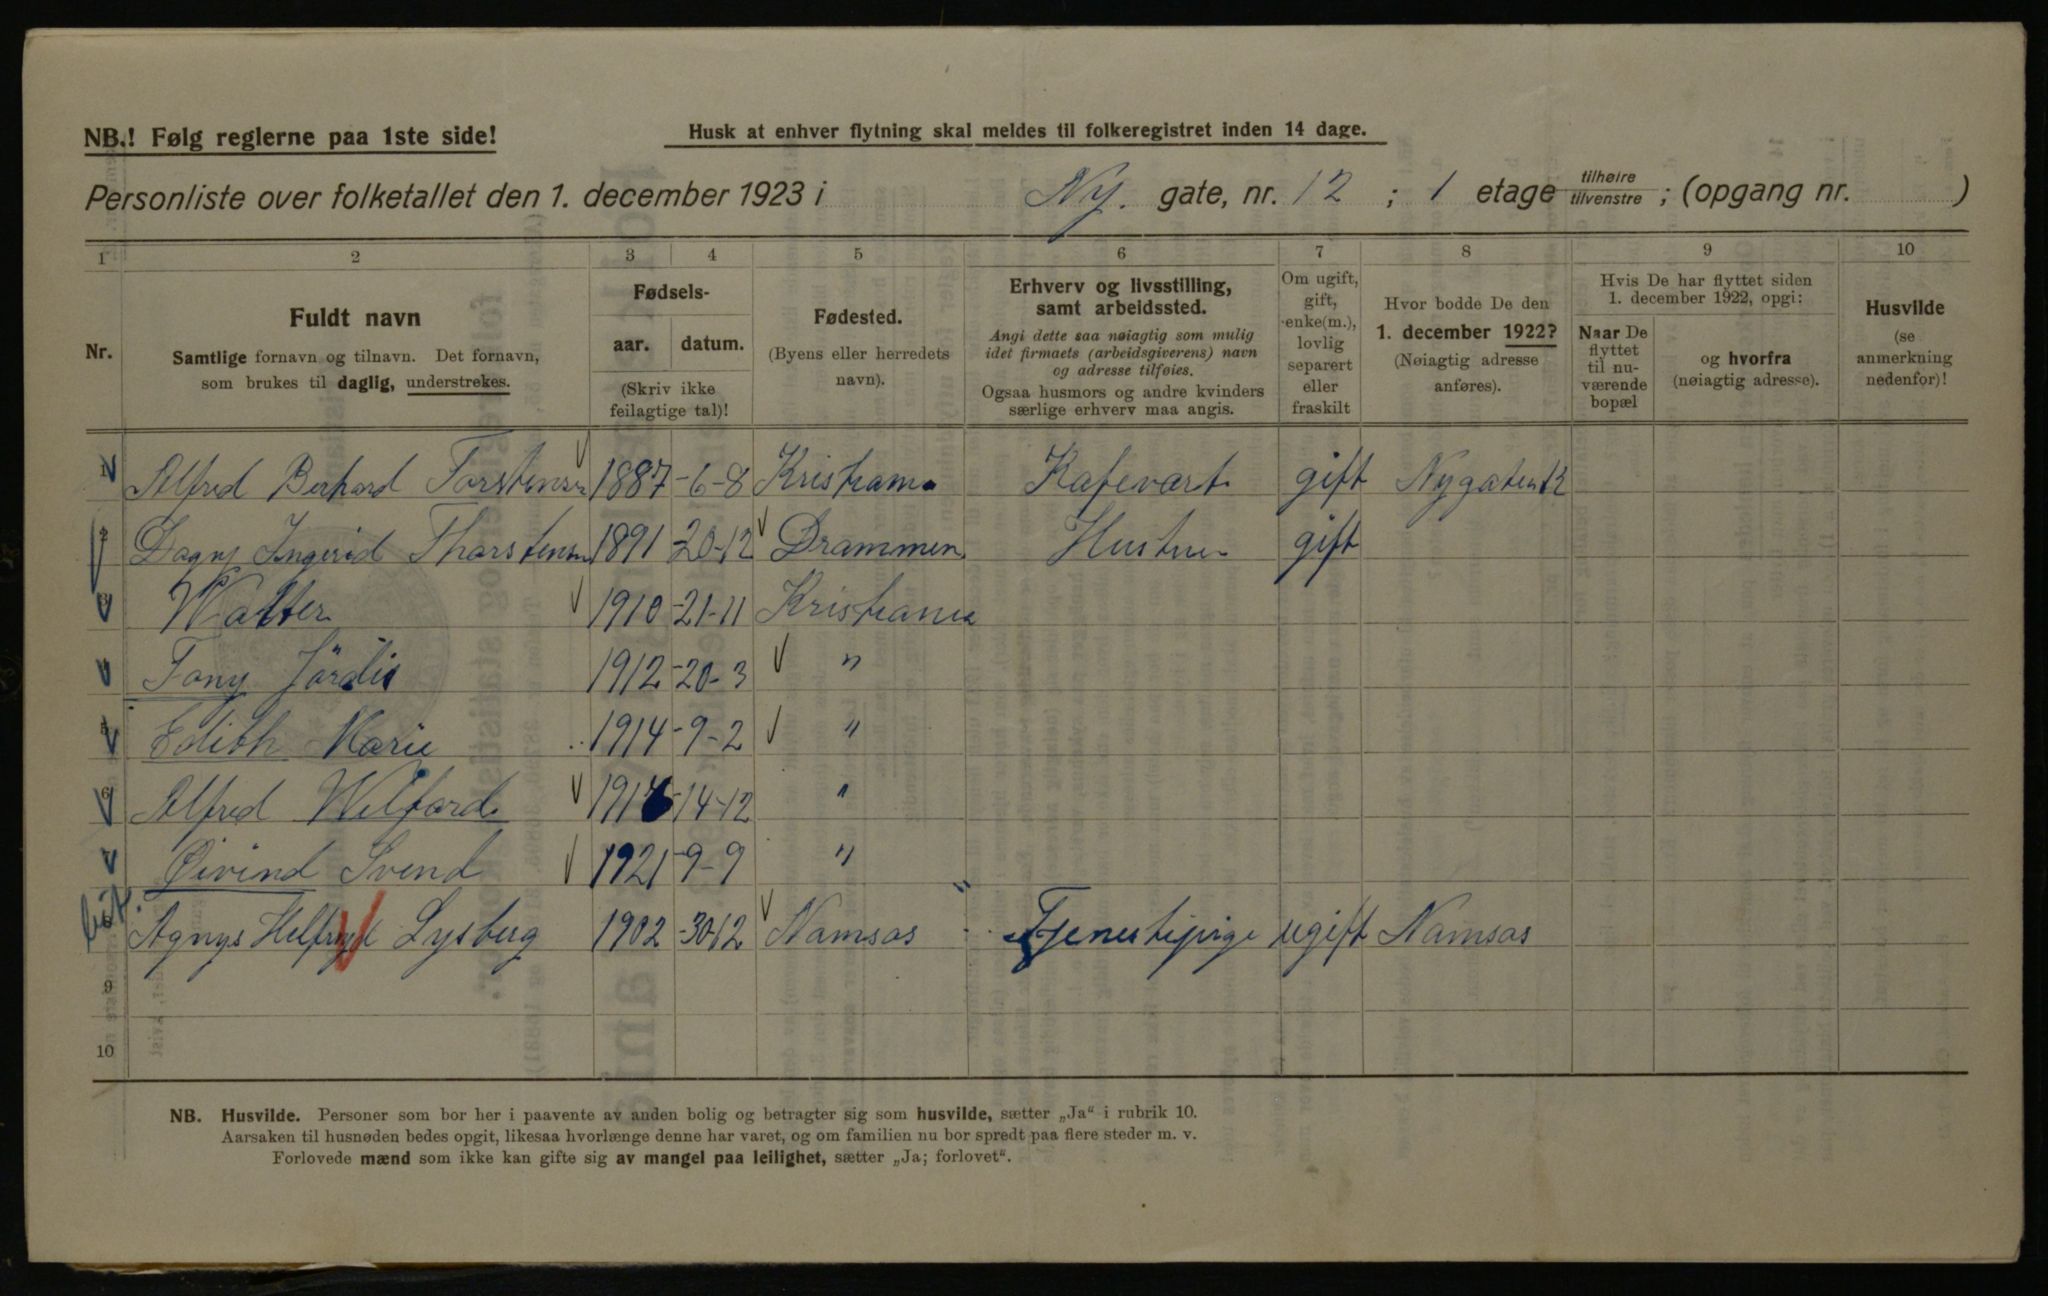 NB.! Følg reglerne paa 1ste side!
Husk at enhver flytning skal meldes til folkeregistret inden 14 dage.
Personliste over folketallet den 1. december 1923 i Ny. gate, nr. 12 ; 1 etage tilhøire/tilvenstre ; (opgang nr. )
1 2 3 4 5 6 7 8 9 10
Nr.
Fuldt navn
Samtlige fornavn og tilnavn. Det fornavn,
som brukes til daglig, understrekes.
Fødsels-
aar. datum.
(Skriv ikke
feilagtige tal)!
Fødested.
(Byens eller herredets
navn).
Erhverv og livsstilling,
samt arbeidssted.
Angi dette saa nøiagtig som mulig
idet firmaets (arbeidsgiverens) navn
og adresse tilføies.
Ogsaa husmors og andre kvinders
særlige erhverv maa angis.
Om ugift,
gift,
enke(m.),
lovlig
separert
eller
fraskilt
Hvor bodde De den
1. december 1922?
(Nøiagtig adresse
anføres).
Hvis De har flyttet siden
1. december 1922, opgi:
Naar De
flyttet
til nu-
værende
bopæl
og hvorfra
(nøiagtig adresse).
Husvilde
(se
anmerkning
nedenfor)!
1 Alfred Berhard Torstensen 1887 -6-8 Kristiania Kafevært gift Nygaten 12
2 Dagny Ingerid Thorstensen 1891 -20-12 Drammen Hustru gift
3 Walter 1910 -21-11 Kristiania
4 Tony Jördis 1912 -20-3 "
5 Edith Marie 1914 -9-2 "
6 Alfred Wilford 1916 -14-12 "
7 Øivind Svend 1921 -9-9 "
8 Agnys Helfryd Lysberg 1902 -30-12 Namsos Tjenestepige ugift Namsos
9
10
NB. Husvilde. Personer som bor her i paavente av anden bolig og betragter sig som husvilde, sætter „Ja“ i rubrik 10.
Aarsaken til husnøden bedes opgit, likesaa hvorlænge denne har varet, og om familien nu bor spredt paa flere steder m. v.
Forlovede mænd som ikke kan gifte sig av mangel paa leilighet, sætter „Ja; forlovet“.